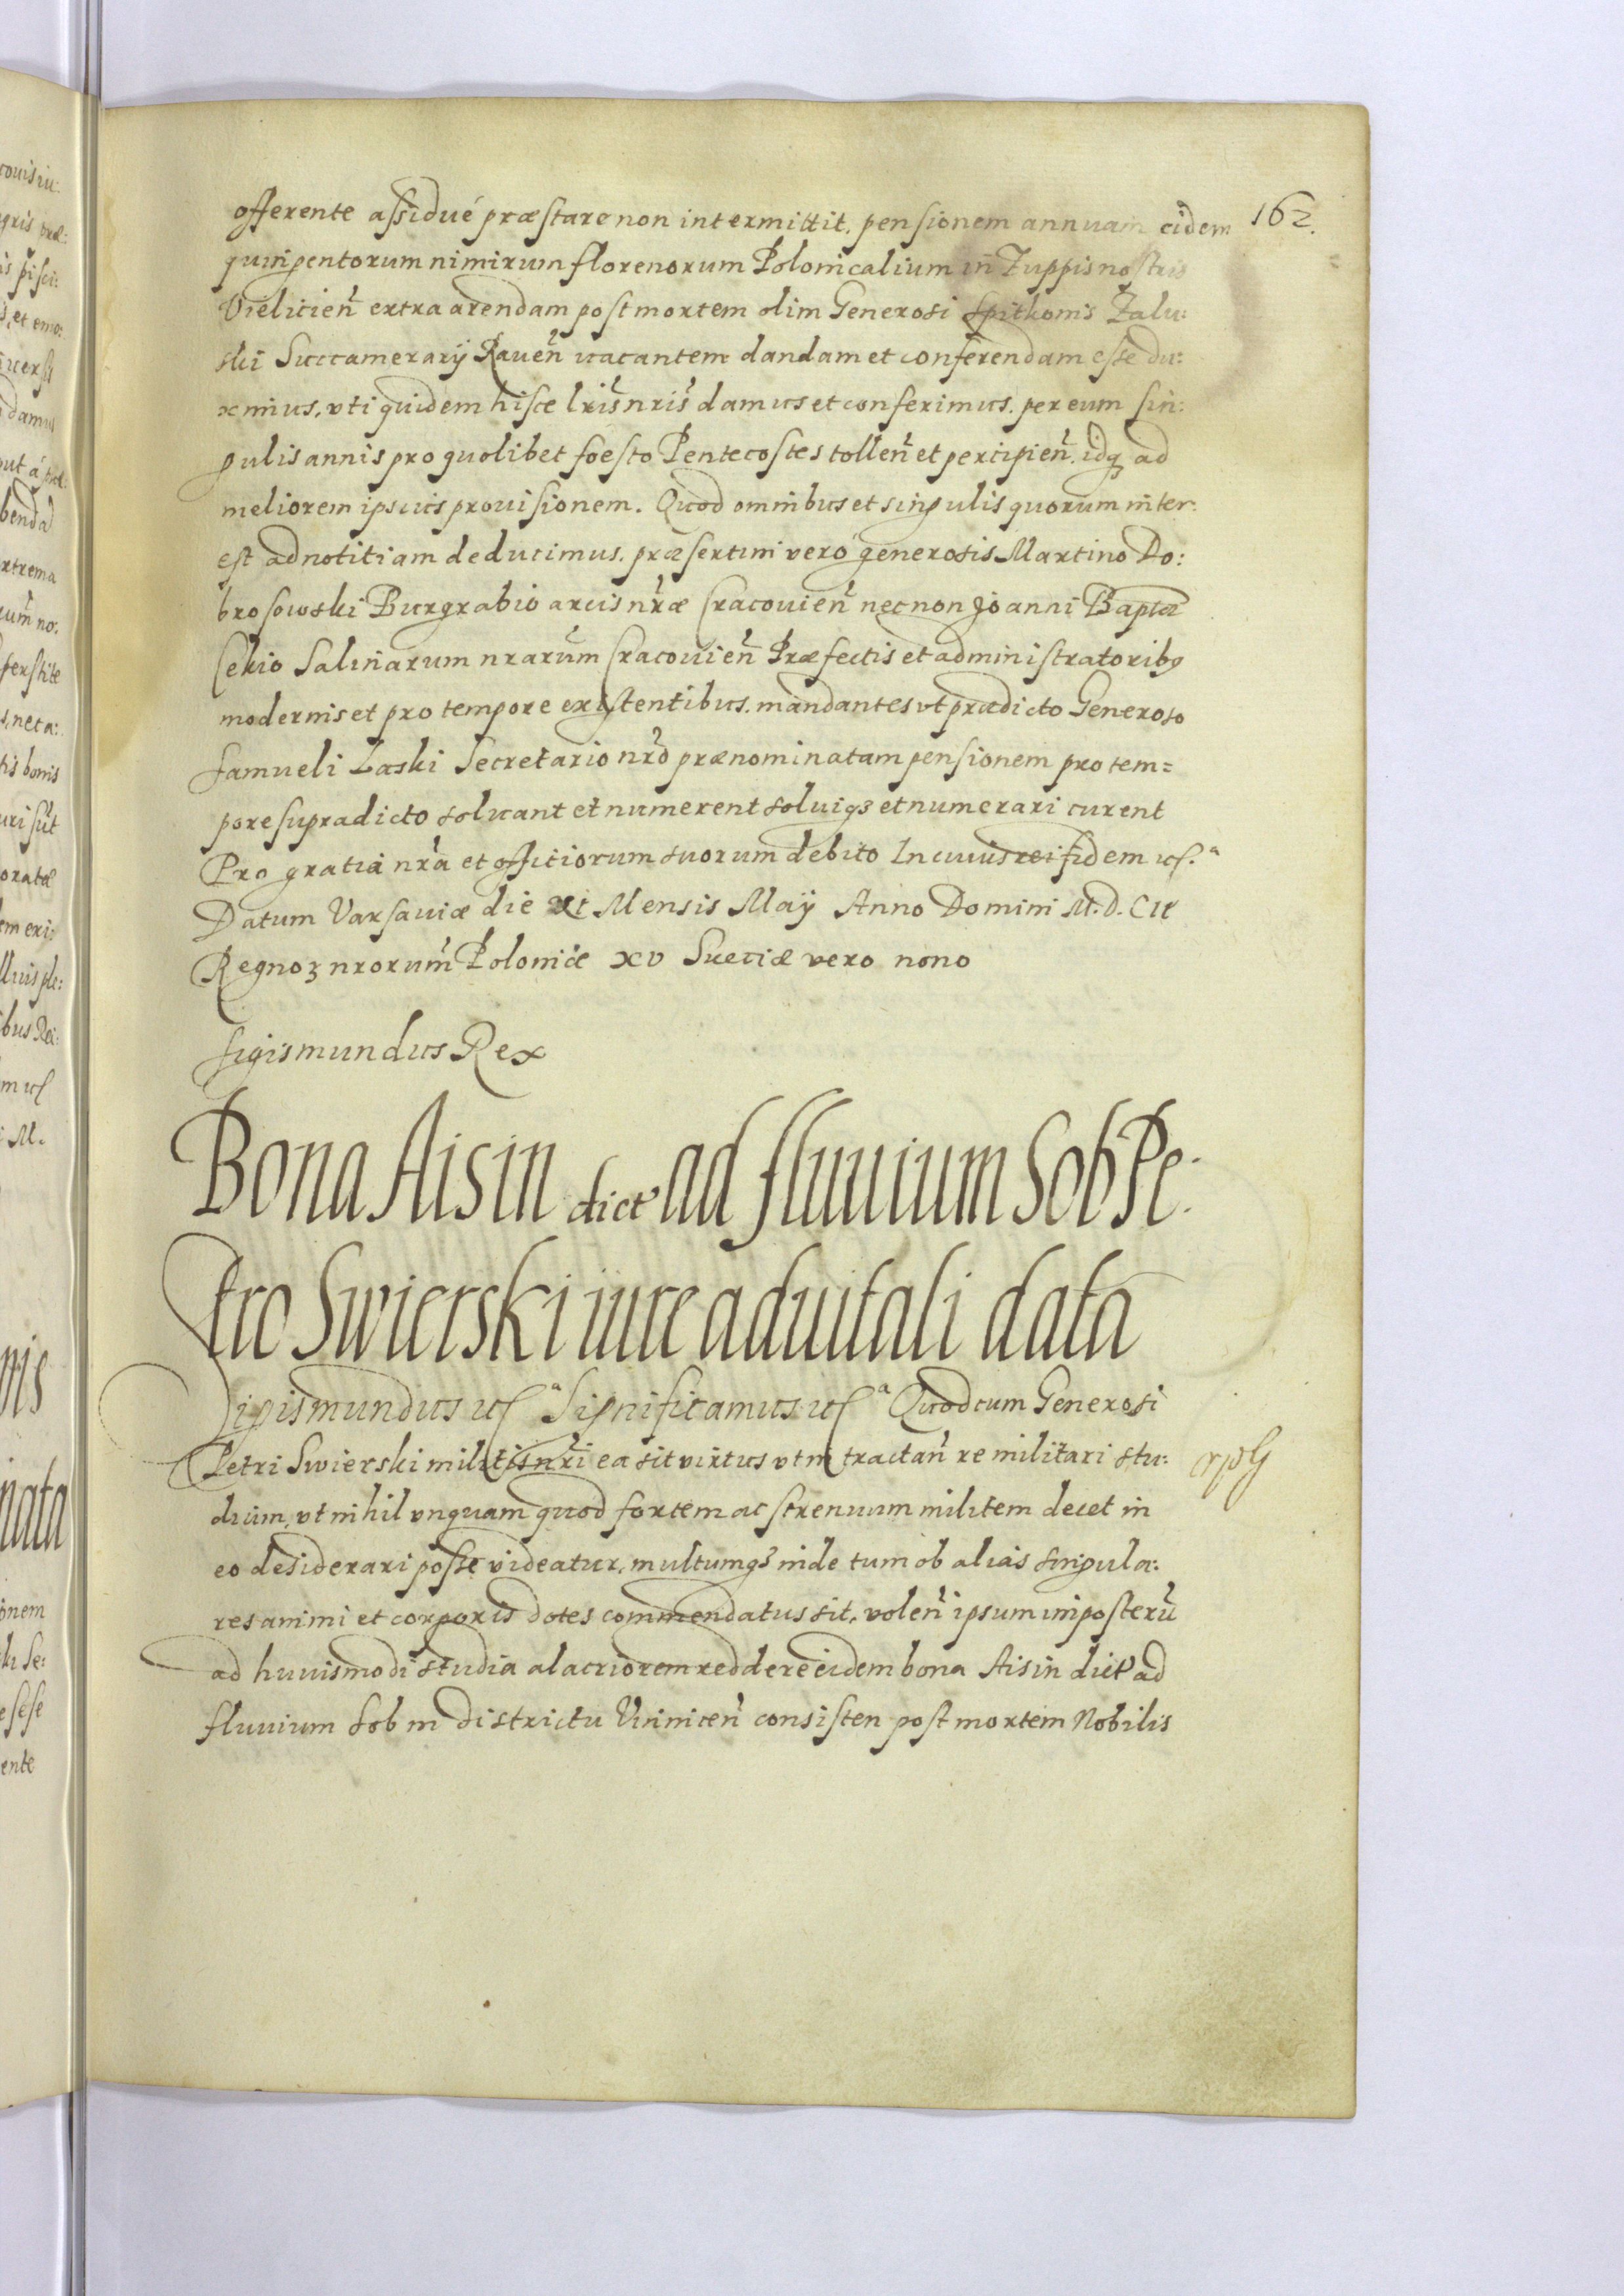 162.
offerente assidué præstare non intermittit, pensionem annuam eidem
quingentorum nimirum florenorum Polonicalium in Zuppis nostris
Vielicień extra arendam post mortem olim Generosi Spitkonis Zalu:
ski Succamerarij Raueń vacantem dandam et conferendam esse du:
ximus, vti quidem hisce lris̄ nris̄ damus et conferimus, per eum sin:
gulis annis pro quolibet foesto Pentecostes tolleń et percipień, idq3 ad
meliorem ipsius prouisionem. Quod omnibus et singulis quorum inter:
est ad notitiam deducimus, præsertim veró generosis Martino Do:
brosowski Burgrabio arcis nr̄æ Cracouień nec non Joanni Baptæ
Cekio Salinarum nrarūm Cracouień Præfectis et administratorib9
modernis et pro tempore existentibus, mandantes vt prædicto Generoso
Samueli Laski Secretario nrō prænominatam pensionem pro tem=
pore supradicto soluant et numerent soluiq3 et numerari curent
Pro gratia nr̄a et officiorum suorum debito In cuius rei fidem etc.ª
Datum Varsauiæ die xi Mensis Maÿ Anno Domini M.D.CII
Regno3 nrorum̄ Poloniæ XV Sueciæ vero nono
Sigismundus Rex
Bona Aisin dict' ad fluuium Sob Pe:
tro Swierski iure aduitali data
Sigismundus etcª Significamus etcª Quod cum Generosi
Petri Swierski militis nrī ea sit virtus vt in tractań re militari stu:
dium, vt nihil vnquam quod fortem ac strenuum militem decet in
eo desiderari posse videatur, multumq3 inde tum ob alias singula:
res animi et corporis dotes commendatus sit, voleń ipsum inposterū
ad huuismodi studia alacriorem reddere eidem bona Aisin dict' ad
fluuium Sob in districtu Vinniceń consisten post mortem Nobilis